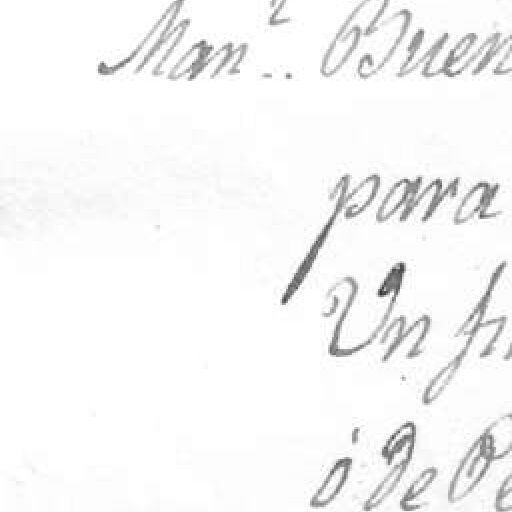 Man.l.. Buen
para
Un
ó de Pe